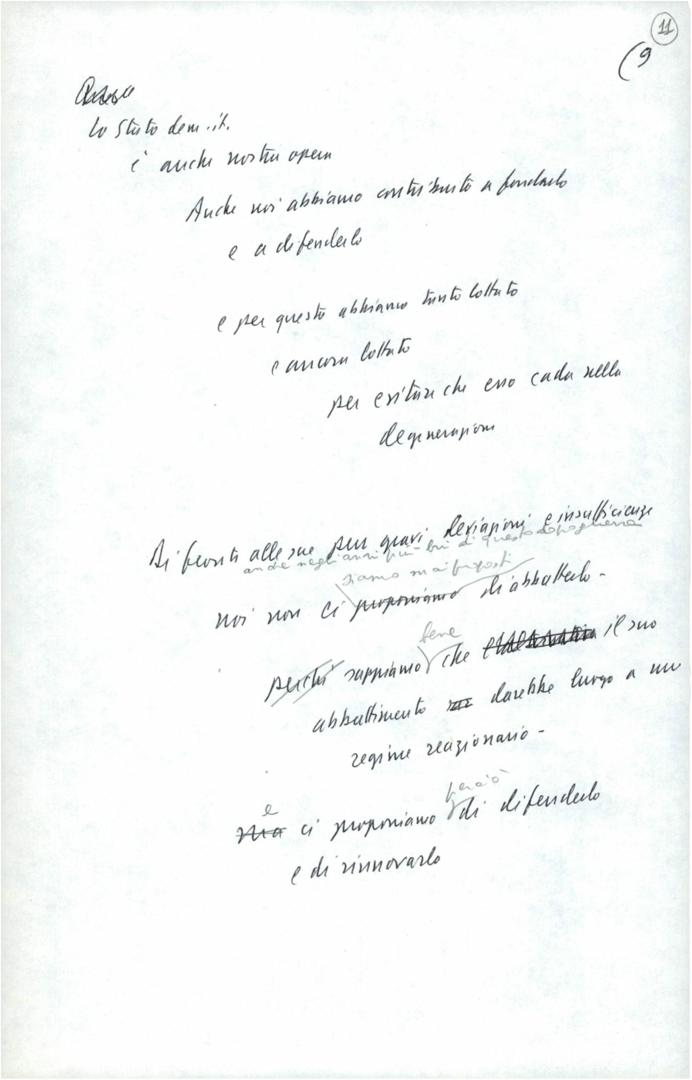 11
(9
Lo Stato dem. it.
è anche nostra opera
Anche noi abbiamo contribuito a fondarlo
e a difenderlo
e per questo abbiamo tanto lottato
e ancora lottato
per evitare che esso cada nella
degenerazione
Di fronte alle sue pur gravi deviazioni e insufficienze
anche negli anni più bui di questo dopoguerra
siamo mai proposti
noi non ci proponiamo di abbatterlo -
bene
perché sappiamo che il suo
abbattimento darebbe luogo a un
regime reazionario -
perciò
e
ma ci proponiamo di difenderlo
e di rinnovarlo